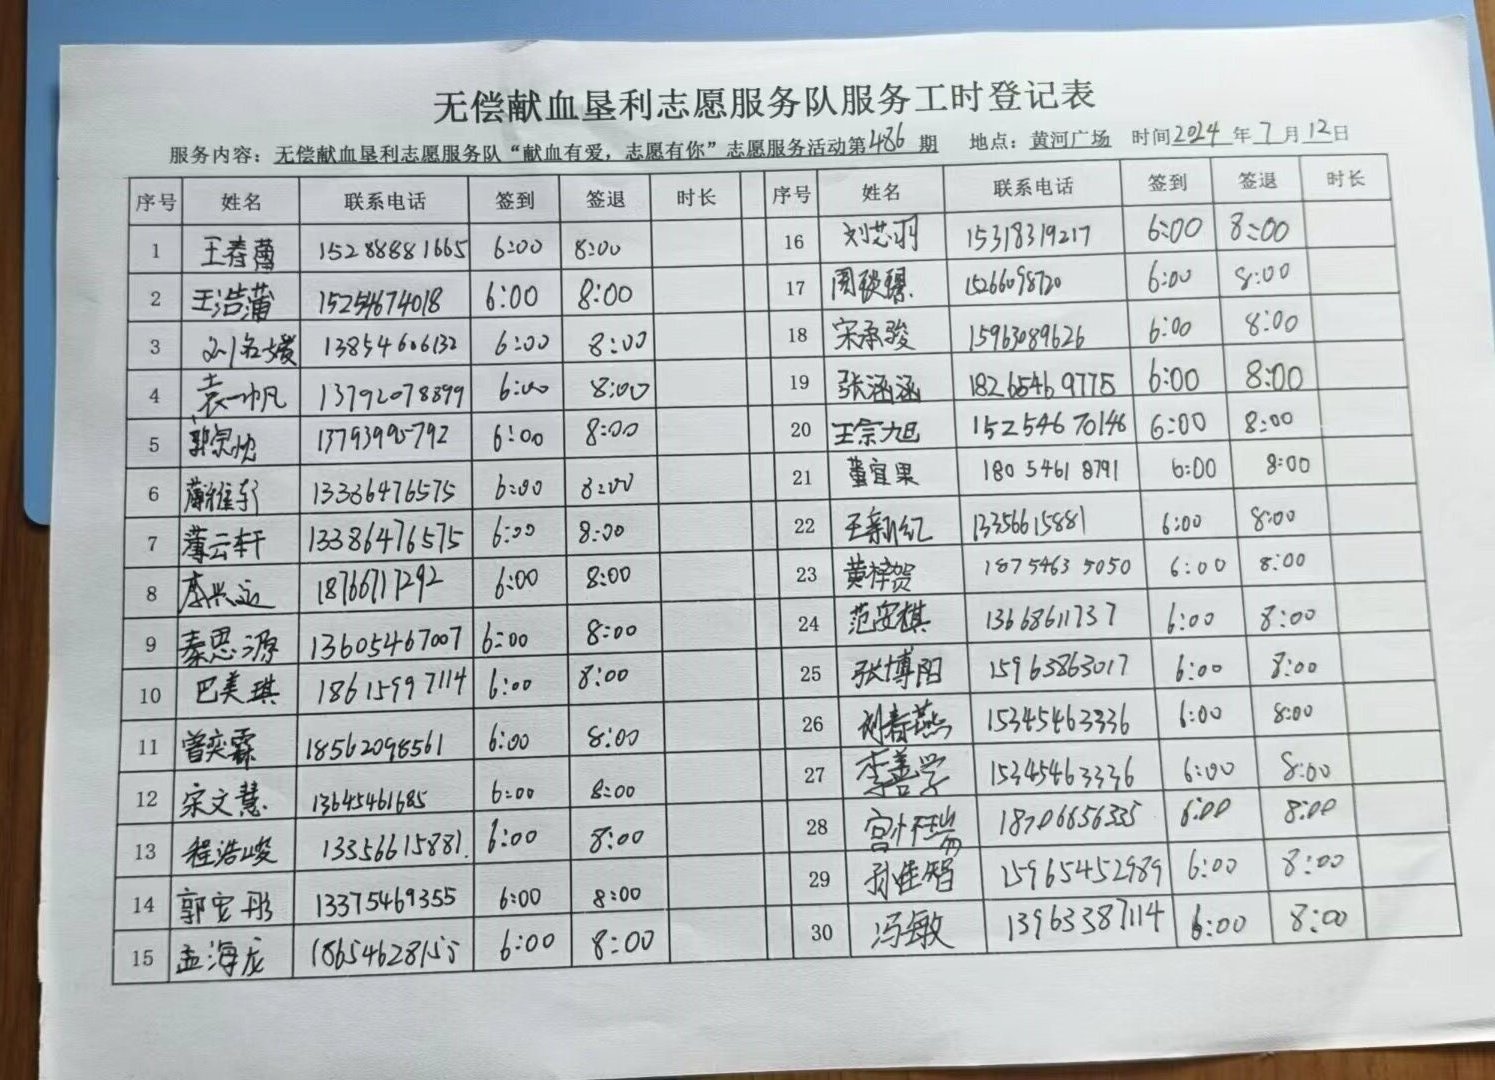 无偿献血垦利志愿服务队服务工时登记表
服务内容：无偿献血垦利志愿服务队“献血有爱，志愿有你”志愿服务活动第486期 地点：黄河广场 时间2024年7月12日
序号 姓名 联系电话 签到 签退 时长 序号 姓名 联系电话 签到 签退 时长
1 王春蕾 15288881665 6:00 8:00 16 刘芯羽 15318319217 6:00 8:00
2 王浩蒲 15254674018 6:00 8:00 17 周 15266098720 6:00 8:00
3 13854606132 6:00 8:00 18 宋承骏 15963089626 6:00 8:00
4 袁一帆 13792078399 6:00 8:00 19 张涵涵 18265469775 6:00 8:00
5 郭宗 13793995792 6:00 8:00 20 王宗旭 15254670146 6:00 8:00
6 13386476575 6:00 8:00 21 董宜果 18054618791 6:00 8:00
7 薄云轩 13386476575 6:00 8:00 22 王新红 13356615881 6:00 8:00
8 李兴运 18766717292 6:00 8:00 23 黄梓贺 18754635050 6:00 8:00
9 秦思源 13605467007 6:00 8:00 24 范安棋 13668611737 6:00 8:00
10 巴美琪 18615997114 6:00 8:00 25 张博阳 15963863017 6:00 8:00
11 曾奕霖 18562098561 6:00 8:00 26 刘春燕 15345463336 6:00 8:00
12 宋文慧 13645461685 6:00 8:00 27 李善学 15345463336 6:00 8:00
13 程浩峻 13356615881. 6:00 8:00 28 宫怀瑞 18706656335 6:00 8:00
14 郭宏彤 13375469355 6:00 8:00 29 孙佳智 15965452989 6:00 8:00
15 孟海龙 18654628155 6:00 8:00 30 冯敏 13963387114 6:00 8:00